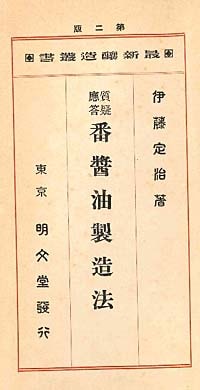 版二第
書叢造釀新最
伊藤定治著
質疑
應答
番醬油製造法
東京 明文堂發行